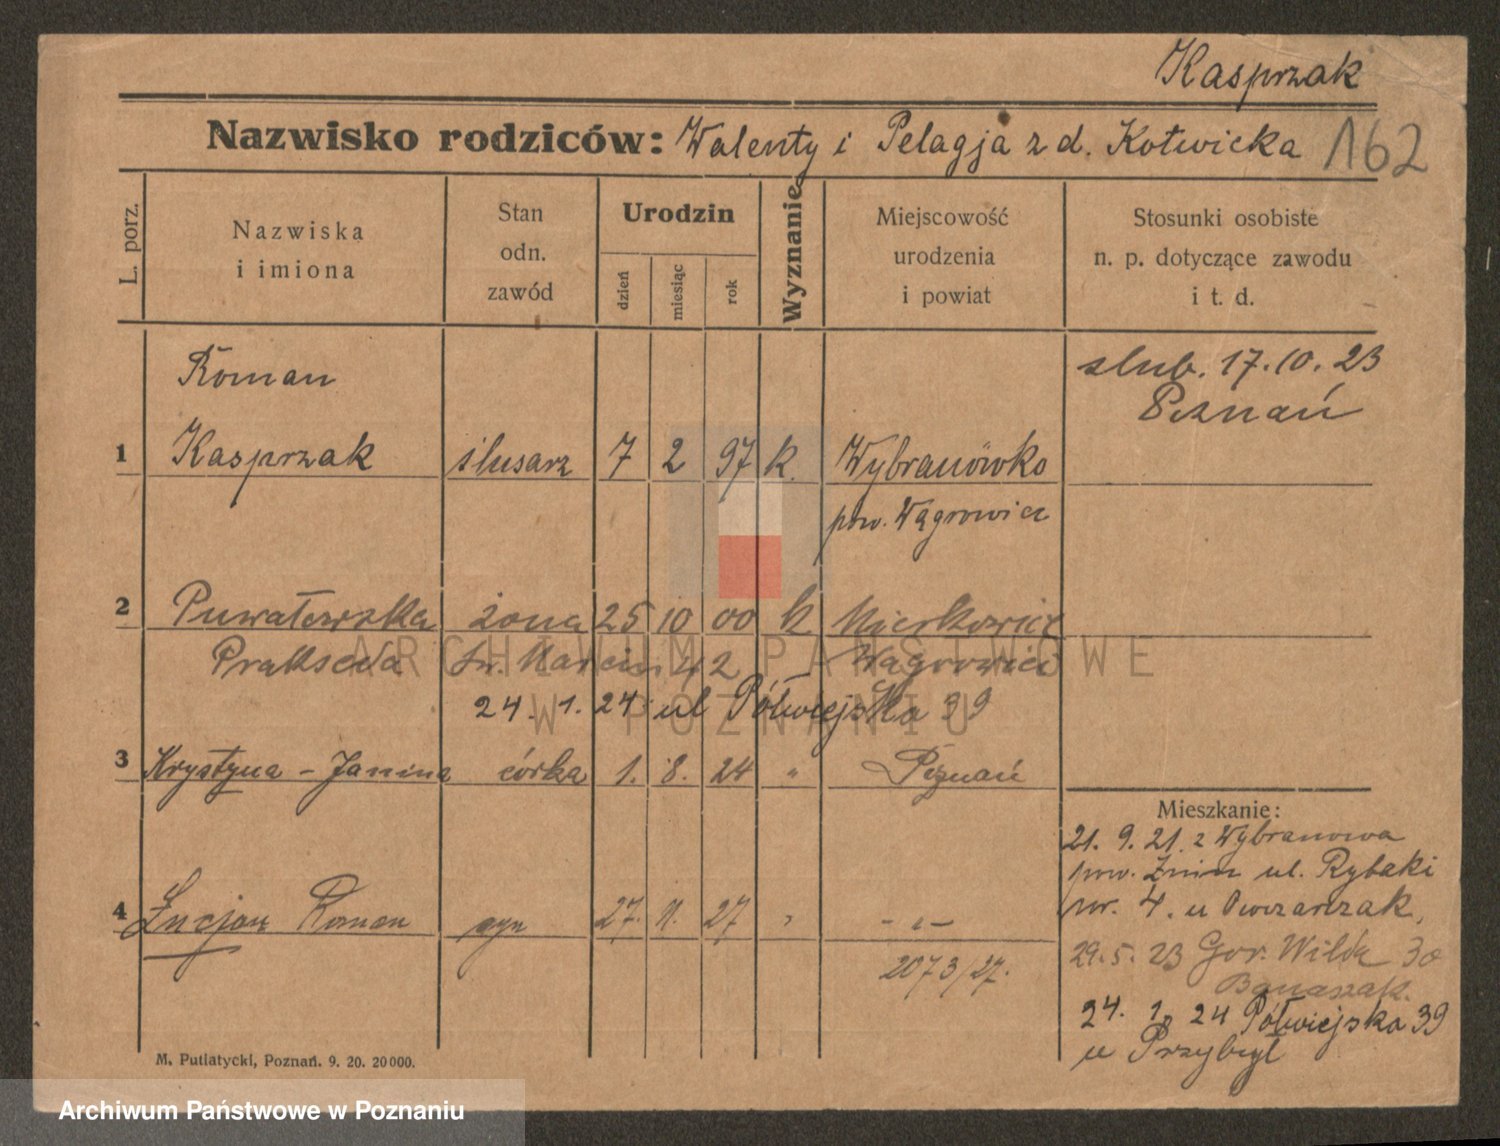 Kasprzak
Nazwisko rodziców: Walenty i Pelagja z d. Kotwicka 162
L. porz.
Nazwiska
i imiona
Stan
odn.
zawód
Urodzin
dzień
miesiąc
rok
Wyznanie
Miejscowość
urodzenia
i powiat
Stosunki osobiste
n. p. dotyczące zawodu
i t. d.
Roman
slub. 17.10.23
Poznań
1 Kasprzak ślusarz 7 2 97 k. Wybranówko
pow. Wągrowiec
2 żona 25 10 00 k
Prakseda Św. Marcin 42 Wągrowiec
24. 1. 24 ul Półwiejska 39
3 Krystyna - Janina córka 1. 8. 24 " Poznań
Mieszkanie:
21. 9. 21. z Wybranowa
pow. Żnin ul. Rybaki
4. u Owczarczak,
4 Lucjan Roman syn 27. 11. 27 " - " -
29. 5. 23 Gór. Wilda 30
Banaszak.
2073/27.
24. 1. 24 Półwiejska 39
u Przybył
M. Putiatycki, Poznań. 9. 20. 20000.
ARCHIWUM PAŃSTWOWE
W POZNANIU
Archiwum Państwowe w Poznaniu